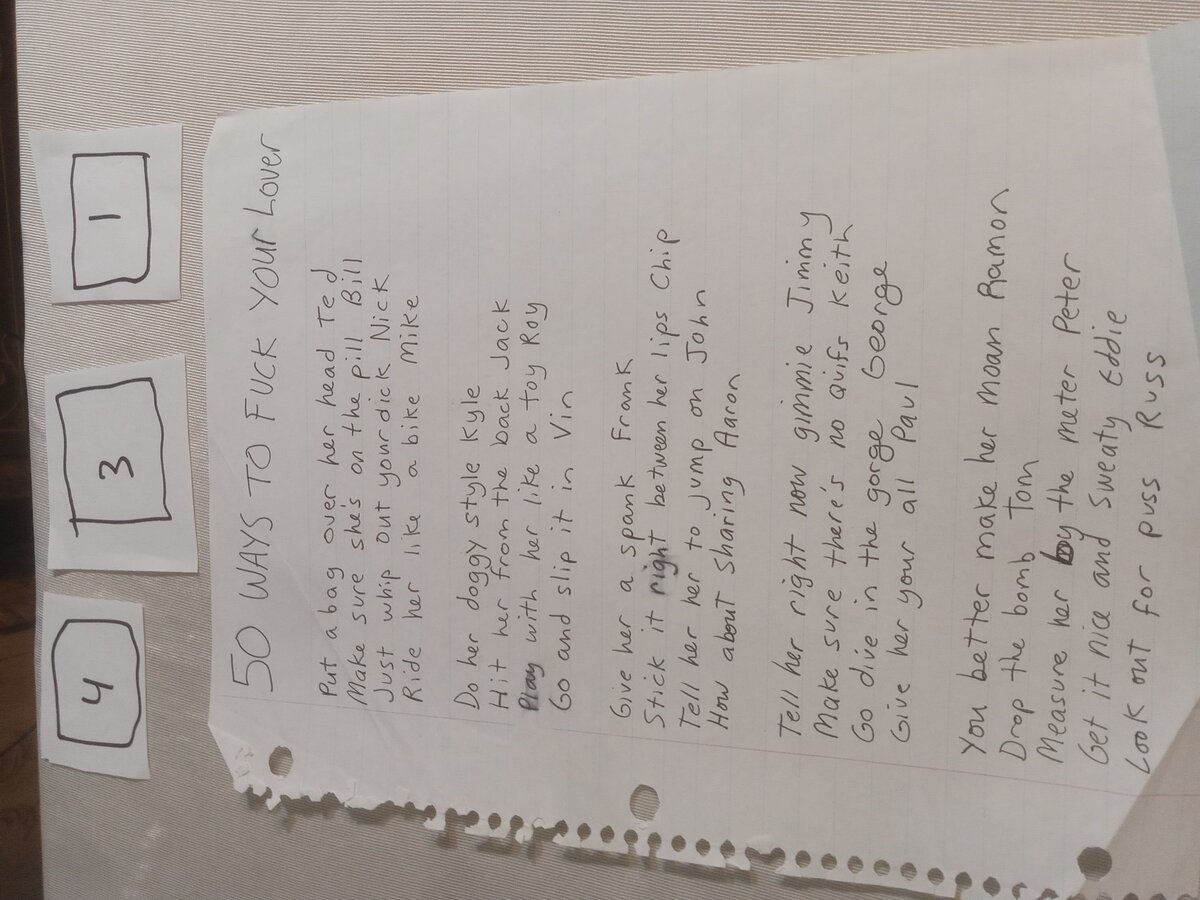 4 3 1
50 WAYS TO FUCK YOUR LOVER
Put a bag over her head Ted
Make sure she's on the pill Bill
Just whip out your dick Nick
Ride her like a bike Mike
Do her doggy style Kyle
Hit her from the back Jack
Play with her like a toy Roy
Go and slip it in Vin
Give her a spank Frank
Stick it right between her lips Chip
Tell her her to jump on John
How about sharing Aaron
Tell her right now gimmie Jimmy
Make sure there's no quifs Keith
Go dive in the gorge George
Give her your all Paul
You better make her moan Ramon
Drop the bomb Tom
Measure her by the meter Peter
Get it nice and sweaty Eddie
Look out for puss Russ